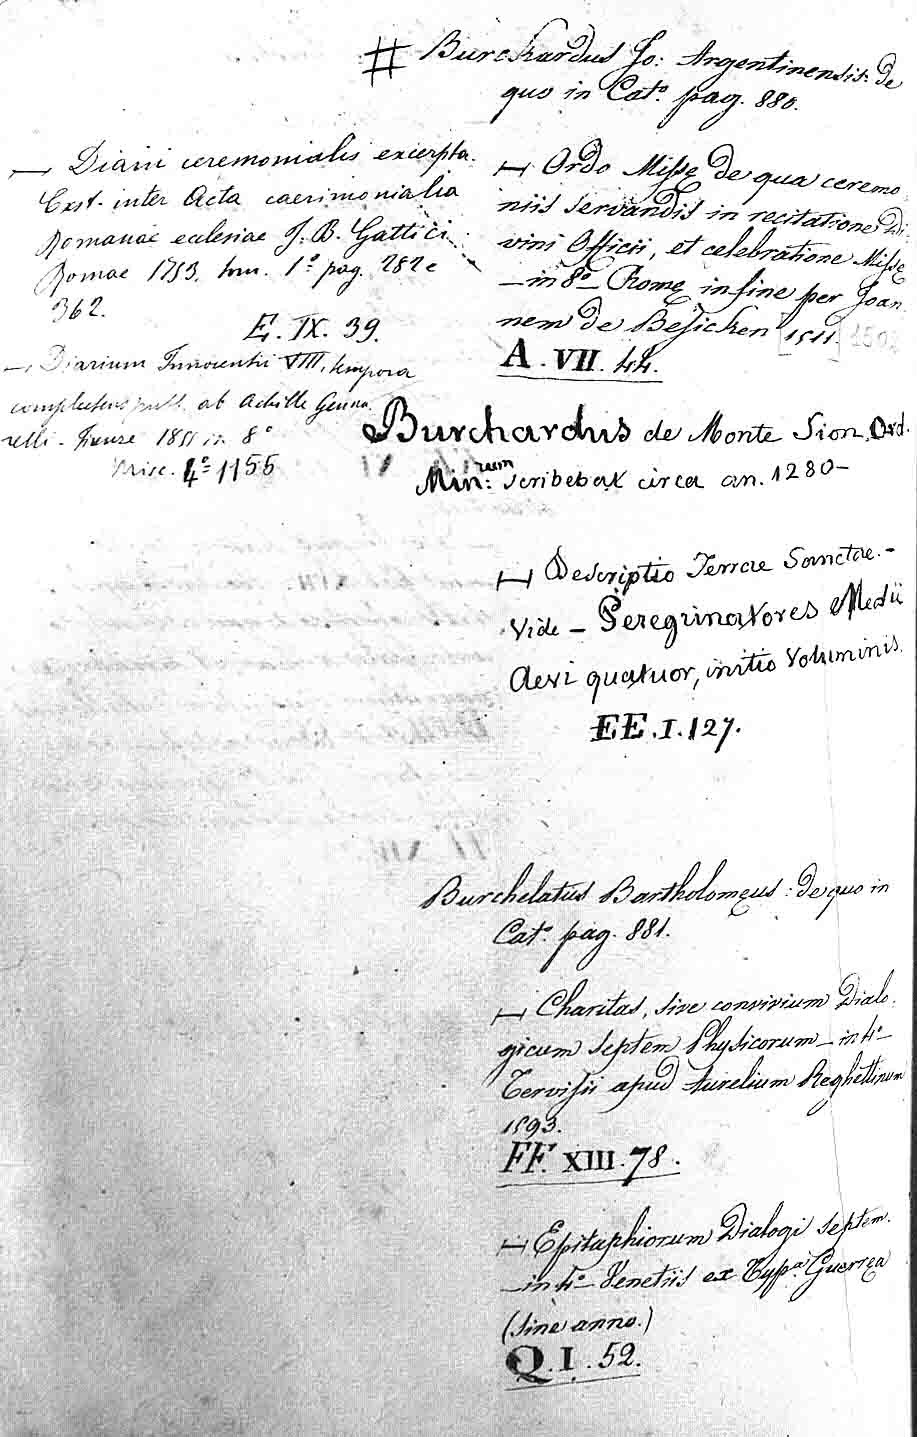 # Burchardus Jo: Argentinensis: de
quo in Cat.º pag. 880.
⊢ Ordo Missę de qua ceremo
niis servandis in recitatione Di
vini Officii, et celebratione Missę
– in 8º – Romę in fine per Joan
nem de Besicken [1511] 1502
A. VII. 44.
⊢ Diarii ceremonialis excerpta.
Exst. inter Acta caerimonialia
Romanae ecclesiae J. B. Gattici
Romae 1753. tom. 1º pag. 282 e
362.
E. IX. 39.
– Diarium Innocentii VIII, tempora
complectens publ. ab Achille Genna
relli – Firenze 18 in 8º
Misc. 4º 1155
Burchardus de Monte Sion, Ord.
Min:rum scribebat circa an. 1280 –
⊢ Descriptio Terrae Sanctae. –
Vide – Peregrinatores Medii
Aevi quatuor, initio voluminis.
EE. I. 127.
Burchelatus Bartholomęus: de quo in
Cat.º pag. 881.
⊢ Charitas, sive convivium Dialo
gicum septem Physicorum – in 4º –
Tervisii apud Aurelium Reghettinum
1593.
FF. XIII. 78.
⊢ Epitaphiorum Dialogi septem.
– in 4º – Venetiis ex Typª. Guerręa
(sine anno.)
Q. I. 52.